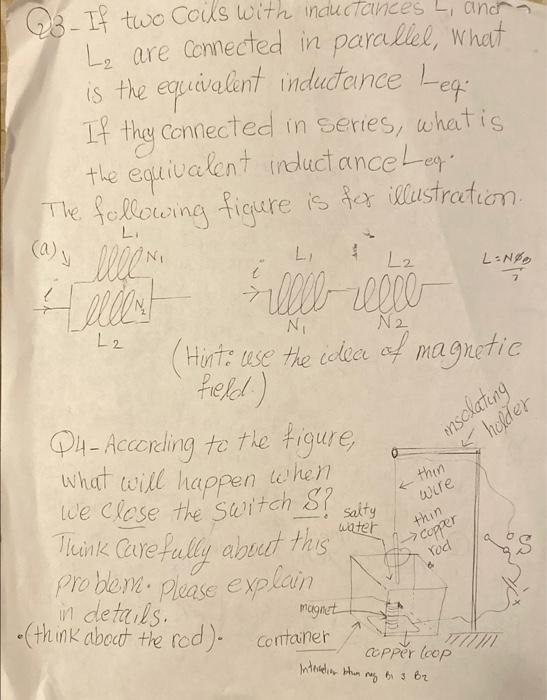 Q3- If two Coils with inductances L1 and
L2 are connected in parallel, what
is the equivalent inductance Leq.
If they connected in series, what is
the equivalent inductance Leq.
The following figure is for illustration.
(a) L1 N1
i N2
L2
i L1 L2
N1 N2
L = NØB
i
(Hint: use the idea of magnetic
field.)
Q4- According to the figure,
what will happen when
we close the switch S?
Think Carefully about this
problem. please explain
in details.
(think about the rod).
insolating
holder
thin
wire
salty
water
thin
copper
rod
S
magnet
container
copper loop
B1 B2